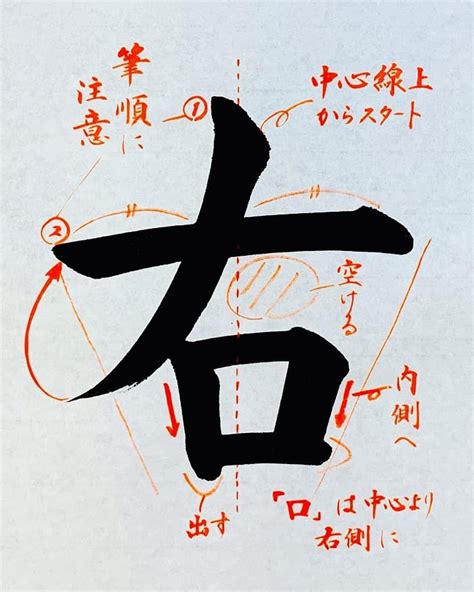 筆順に
注意
①
中心線上
からスタート
②
右
空ける
内側へ
出す
「口」は中心より
右側に